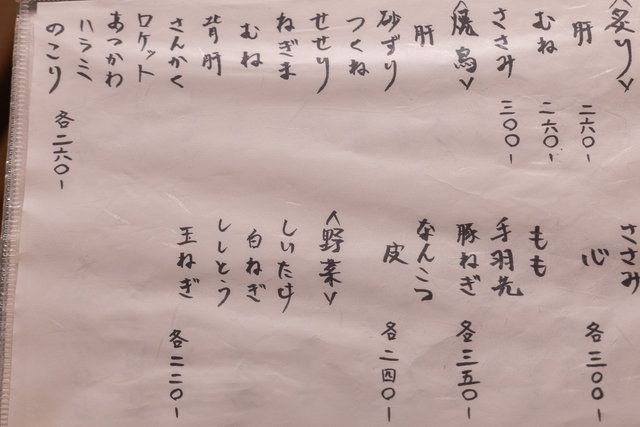 〈炙り〉
肝 二六〇-
むね 二六〇-
ささみ 三〇〇-
〈焼鳥〉
肝
砂ずり
つくね
せせり
ねぎま
むね
背肝
さんかく
ロケット
あつかわ
ハラミ
のこり 各二六〇-
ささみ
心 各三〇〇-
もも
手羽先
豚ねぎ 各三五〇-
なんこつ
皮 各二四〇-
〈野菜〉
しいたけ
白ねぎ
ししとう
玉ねぎ 各二二〇-